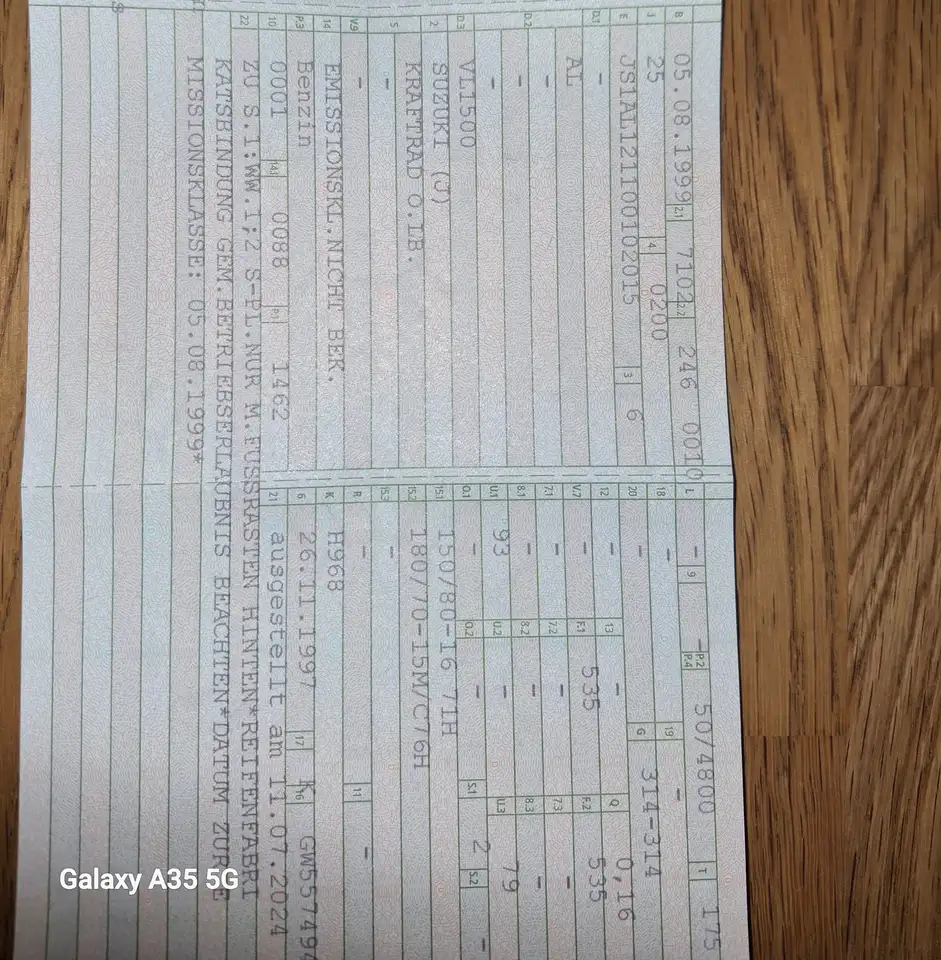 B 05.08.1999 2.1 7102 2.2 246 0010
J 25 4 0200
E JS1AL121100102015 3 6
D.1 -
AL
D.2 -
-
-
D.3 VL1500
2 SUZUKI (J)
5 KRAFTRAD O.LB.
-
V.9 -
14 EMISSIONSKL.NICHT BEK.
P.3 Benzin
10 0001 14.1 0088 P.1 1462
22 ZU S.1:WW.1;2 S-PL.NUR M.FUSSRASTEN HINTEN*REIFENFABRI
KATSBINDUNG GEM.BETRIEBSERLAUBNIS BEACHTEN*DATUM ZUR E
MISSIONSKLASSE: 05.08.1999*
L - 9 - P.2 P.4 50/4800 T 175
18 - 19 -
20 - G 314-314
12 - 13 - Q 0,16
V.7 - F.1 535 F.2 535
7.1 - 7.2 - 7.3 -
8.1 - 8.2 - 8.3 -
U.1 93 U.2 - U.3 79
O.1 - O.2 - S.1 2 S.2 -
15.1 150/80-16 71H
15.2 180/70-15M/C76H
15.3 -
R - 11 -
K H968
6 26.11.1997 17 K 16 GW557494
21 ausgestellt am 11.07.2024
Galaxy A35 5G